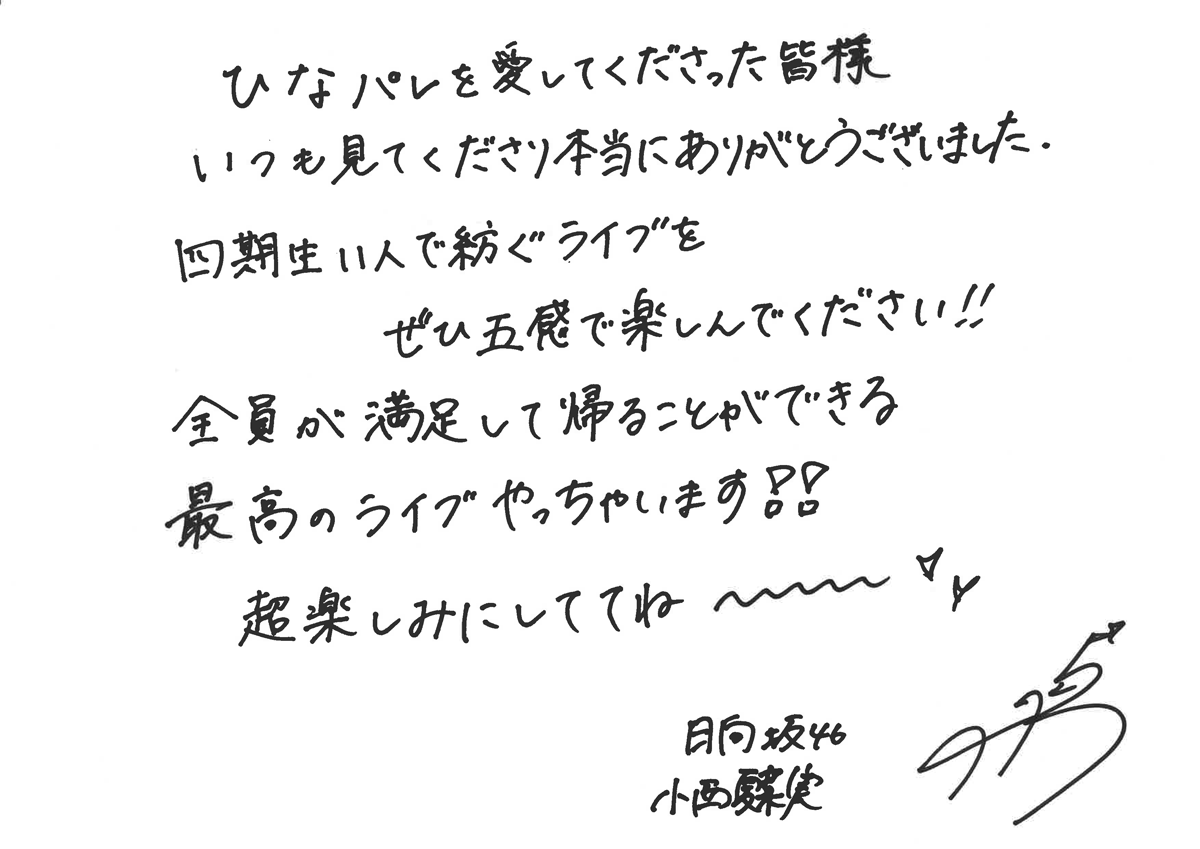 ひなパレを愛してくださった皆様
いつも見てくださり本当にありがとうございました.
四期生11人で紡ぐライブを
ぜひ五感で楽しんでください!!
全員が満足して帰ることができる
最高のライブやっちゃいます!!
超楽しみにしててね〜〜〜〜
日向坂46
小西夏菜実